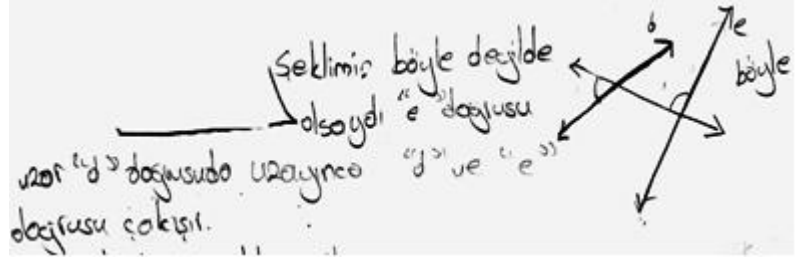 Şeklimiz böyle değilde
d
e
böyle
olsaydı "e" doğrusu
uzar "d" doğrusuda uzayınca "d" ve "e"
doğrusu çakışır.